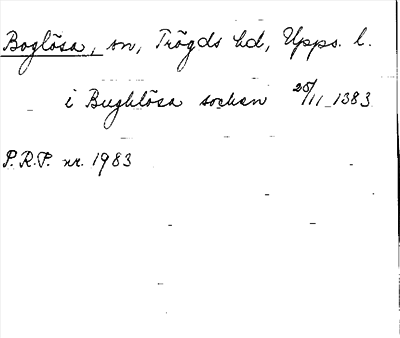 Boglösa, sn, Trögds hd, Upps. l.
i Bughlösa socken 25/11 1383
P.R.P. nr. 1983